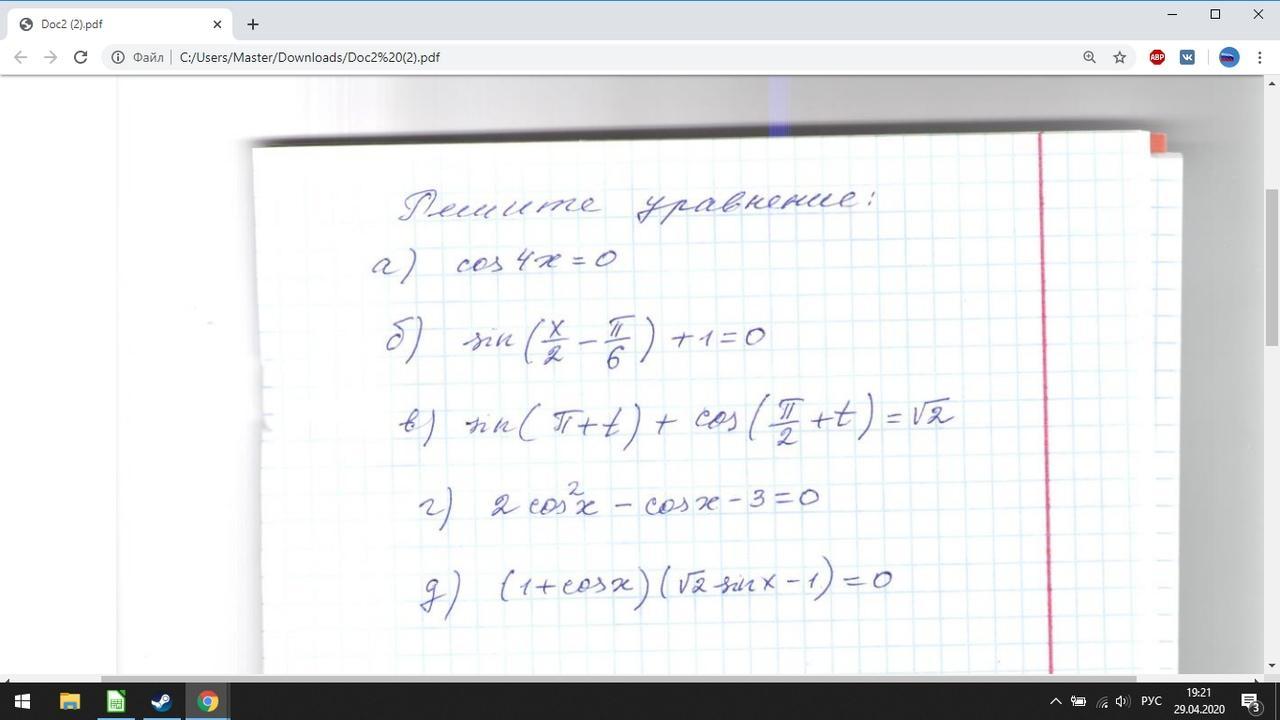 Doc2 (2).pdf
Файл | C:/Users/Master/Downloads/Doc2%20(2).pdf
ABP
Решите уравнение:
а) cos 4x = 0
б) sin(x/2 − π/6) + 1 = 0
в) sin(π+t) + cos(π/2 + t) = √2
г) 2 cos²x − cosx − 3 = 0
д) (1+cosx)(√2 sinx − 1) = 0
РУС
19:21
29.04.2020
3